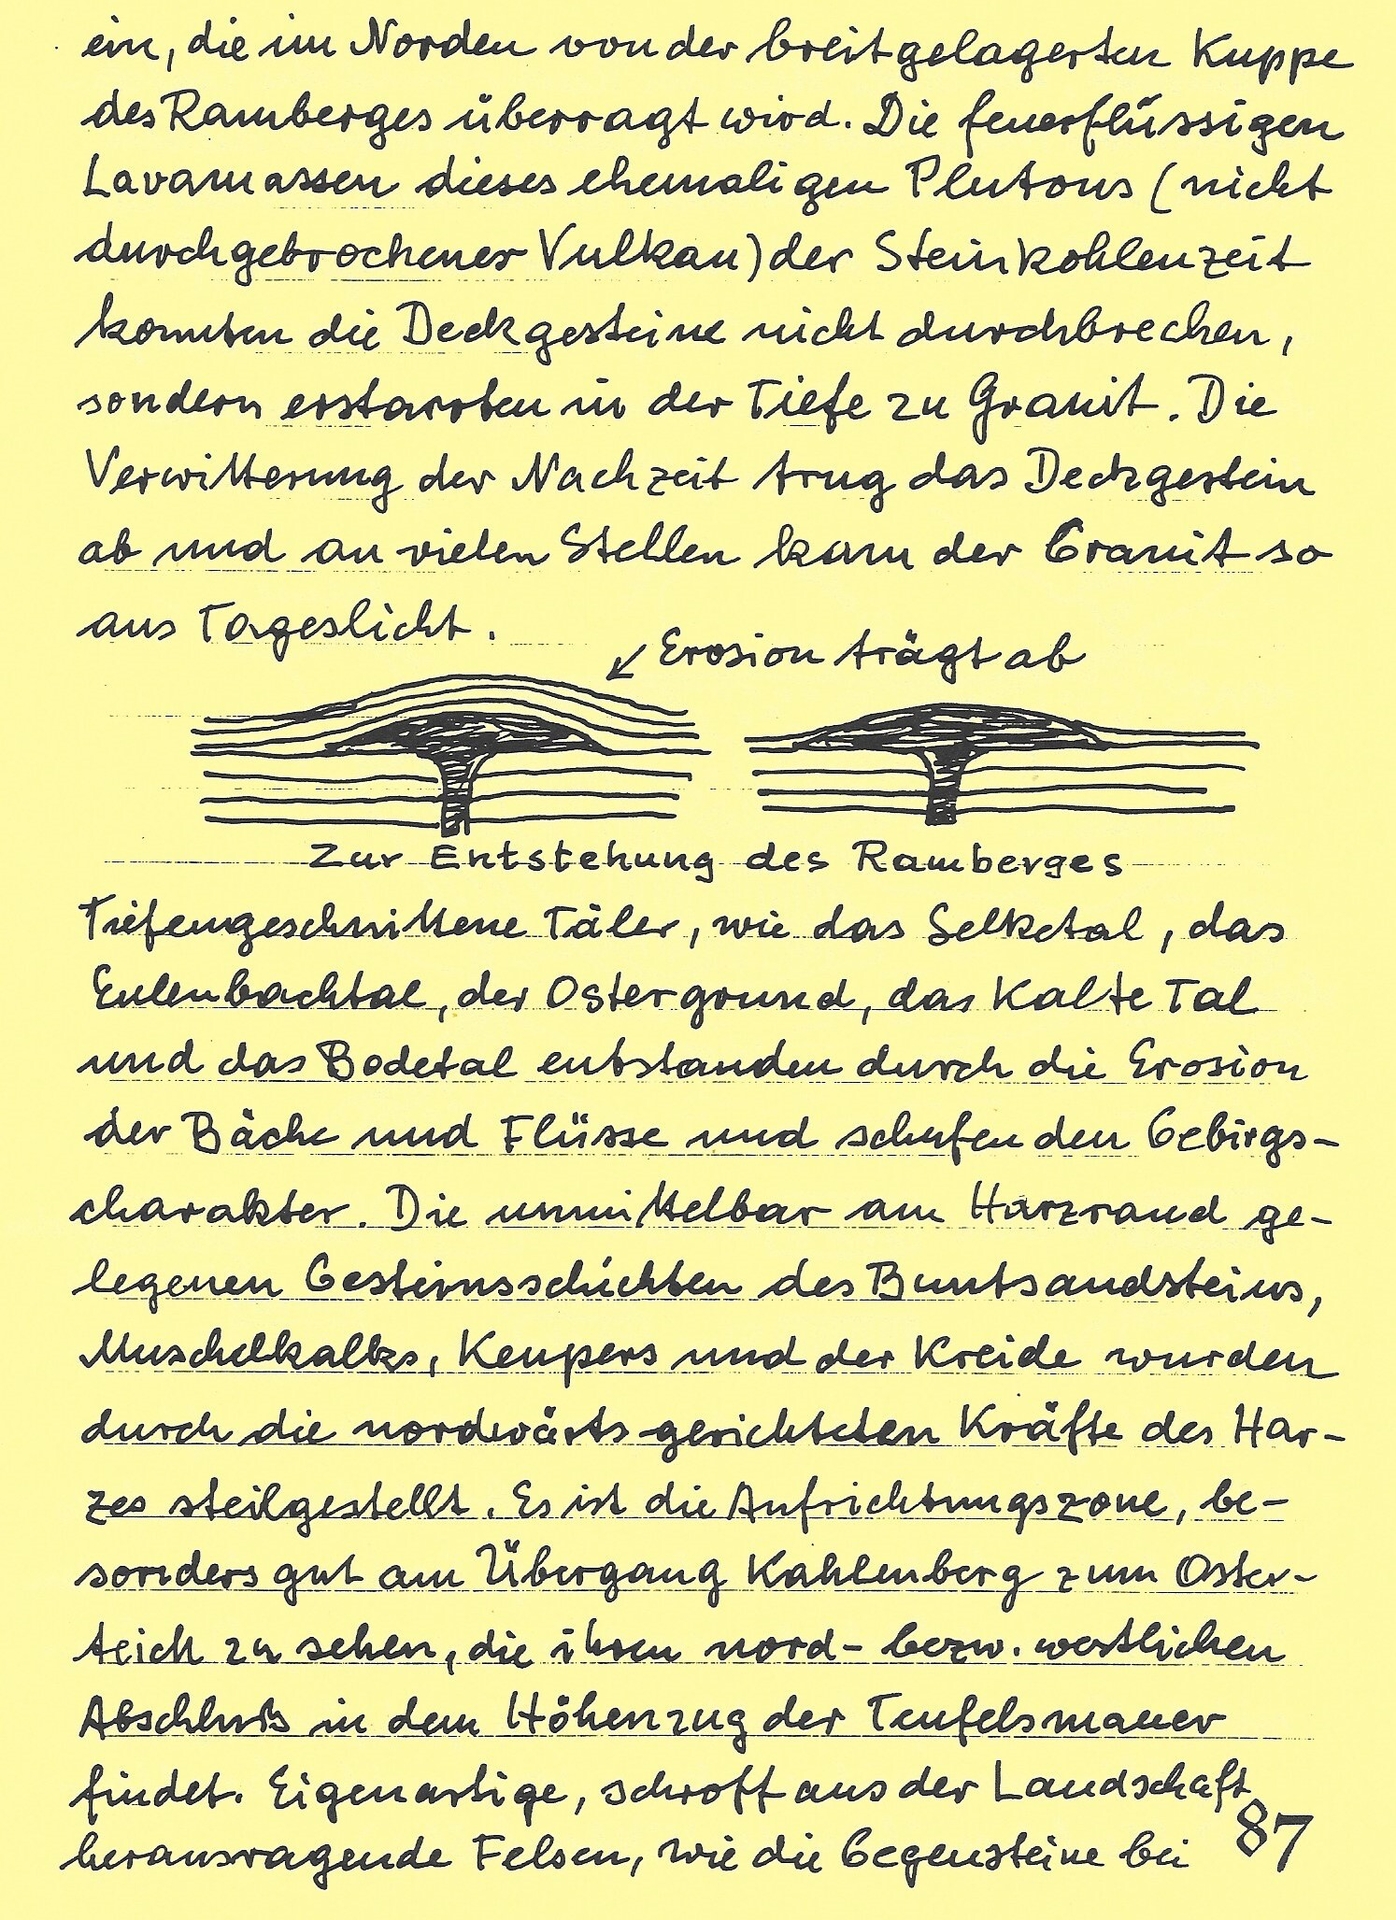 ein, die im Norden von der breitgelagerten Kuppe
des Ramberges überragt wird. Die feuerflüssigen
Lavamassen dieses ehemaligen Plutons (nicht
durchgebrochener Vulkan) der Steinkohlenzeit
konnten die Deckgesteine nicht durchbrechen,
sondern erstarrten in der Tiefe zu Granit. Die
Verwitterung der Nachzeit trug das Deckgestein
ab und an vielen Stellen kam der Granit so
ans Tageslicht.
↙ Erosion trägt ab
Zur Entstehung des Ramberges
Tiefengeschnittene Täler, wie das Selketal, das
Eulenbachtal, der Ostergrund, das Kalte Tal
und das Bodetal entstanden durch die Erosion
der Bäche und Flüsse und schufen den Gebirgs-
charakter. Die unmittelbar am Harzrand ge-
legenen Gesteinsschichten des Buntsandsteins,
Muschelkalks, Keupers und der Kreide wurden
durch die nordwärts gerichteten Kräfte des Har-
zes steilgestellt. Es ist die Aufrichtungszone, be-
sonders gut am Übergang Kahlenberg zum Oster-
teich zu sehen, die ihren nord- bezw. westlichen
Abschluß in dem Höhenzug der Teufelsmauer
findet. Eigenartige, schroff aus der Landschaft
herausragende Felsen, wie die Gegensteine bei
87